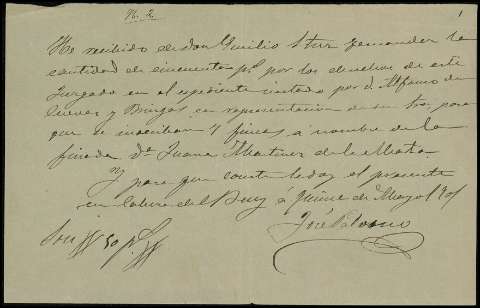 N. 2.
1
He recibido de don Emilio Stur Fernandez la
cantidad de cincuenta pts por los derechos de este
Juzgado en el espediente instado por d. Alfonso de
Cuevas y Burgos en representacion de su tio, para
que se inscriban 4 fincas, a nombre de la
finada Da Juana Martinez de la Mata.
Y para que conste le doy el presente
en Cabra del a quince de Mayo 1901
José Palomo
Son 50 pts